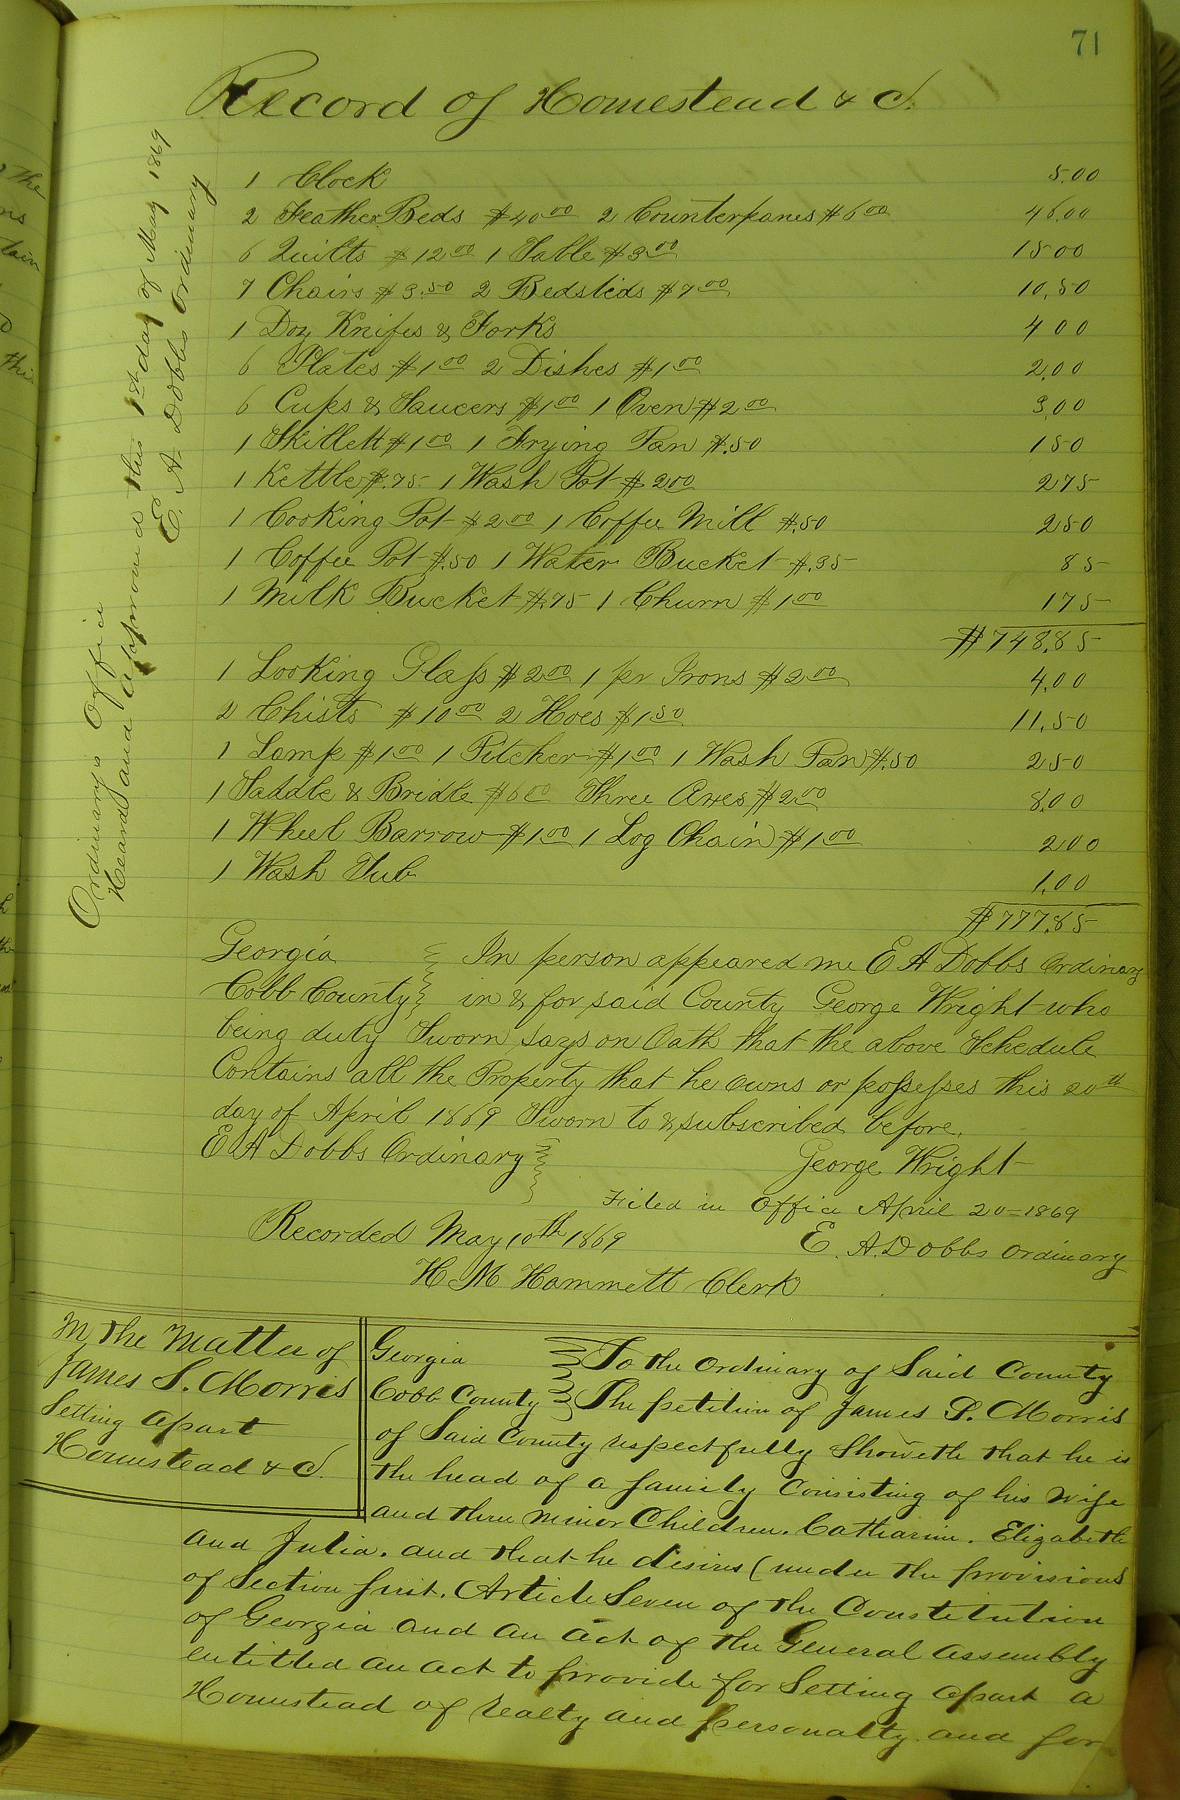 71
Record of Homestead & C.
1 Clock 5.00
2 Feather Beds $40 00 2 Counterpanes $6 00 46.00
6 Quilts $12 00 1 Table $3 00 15 00
7 Chairs $3.50 2 Bedsteds $7 00 10.50
1 Doz Knifes & Forks 4 00
6 Plates $1 00 2 Dishes $1 00 2.00
6 Cups & Saucers $1 00 1 Oven $2 00 3.00
1 Skillett $1 00 1 Frying Pan $.50 1 50
1 Kettle $.75 1 Wash Pot $2 00 2 75
1 Cooking Pot $2 00 1 Coffee Mill $.50 2 50
1 Coffee Pot $.50 1 Water Bucket $.35 85
1 Milk Bucket $.75 1 Churn $1 00 1 75
$748.85
1 Looking Glass $2 00 1 pr Irons $2 00 4.00
2 Chists $10 00 2 Hoes $1 50 11.50
1 Lamp $1 00 1 Pitcher $1 00 1 Wash Pan $.50 2 50
1 Saddle & Bridle $6 00 Three Axes $2 00 8.00
1 Wheel Barrow $1 00 1 Log Chain $1 00 2 00
1 Wash Tub 1.00
$777.85
Ordinarys Office
Heard and approved this 1st day of May 1869
E. A. Dobbs Ordinary
Georgia In person appeared me E A Dobbs Ordinary
Cobb County in & for said County George Wright who
being duly Sworn says on Oath that the above Schedule
Contains all the Property that he owns or possesses this 20th
day of April 1869 Sworn to & subscribed before
E A Dobbs Ordinary George Wright
Filed in Office April 20 = 1869
Recorded May 10th 1869 E. A. Dobbs Ordinary
H M Hammett Clerk
In the Matter of
James S. Morris
Setting apart
Homestead & C.
Georgia To the Ordinary of Said County
Cobb County The petition of James S. Morris
of Said County respectfully Showeth that he is
the head of a family Consisting of his Wife
and three minor Children. Catharine. Elizabeth
and Julia. and that he desires (under the provisions
of Section first. Article Seven of the Constitution
of Georgia and an act of the General assembly
entitled an act to provide for Setting apart a
Homestead of realty and personalty. and for